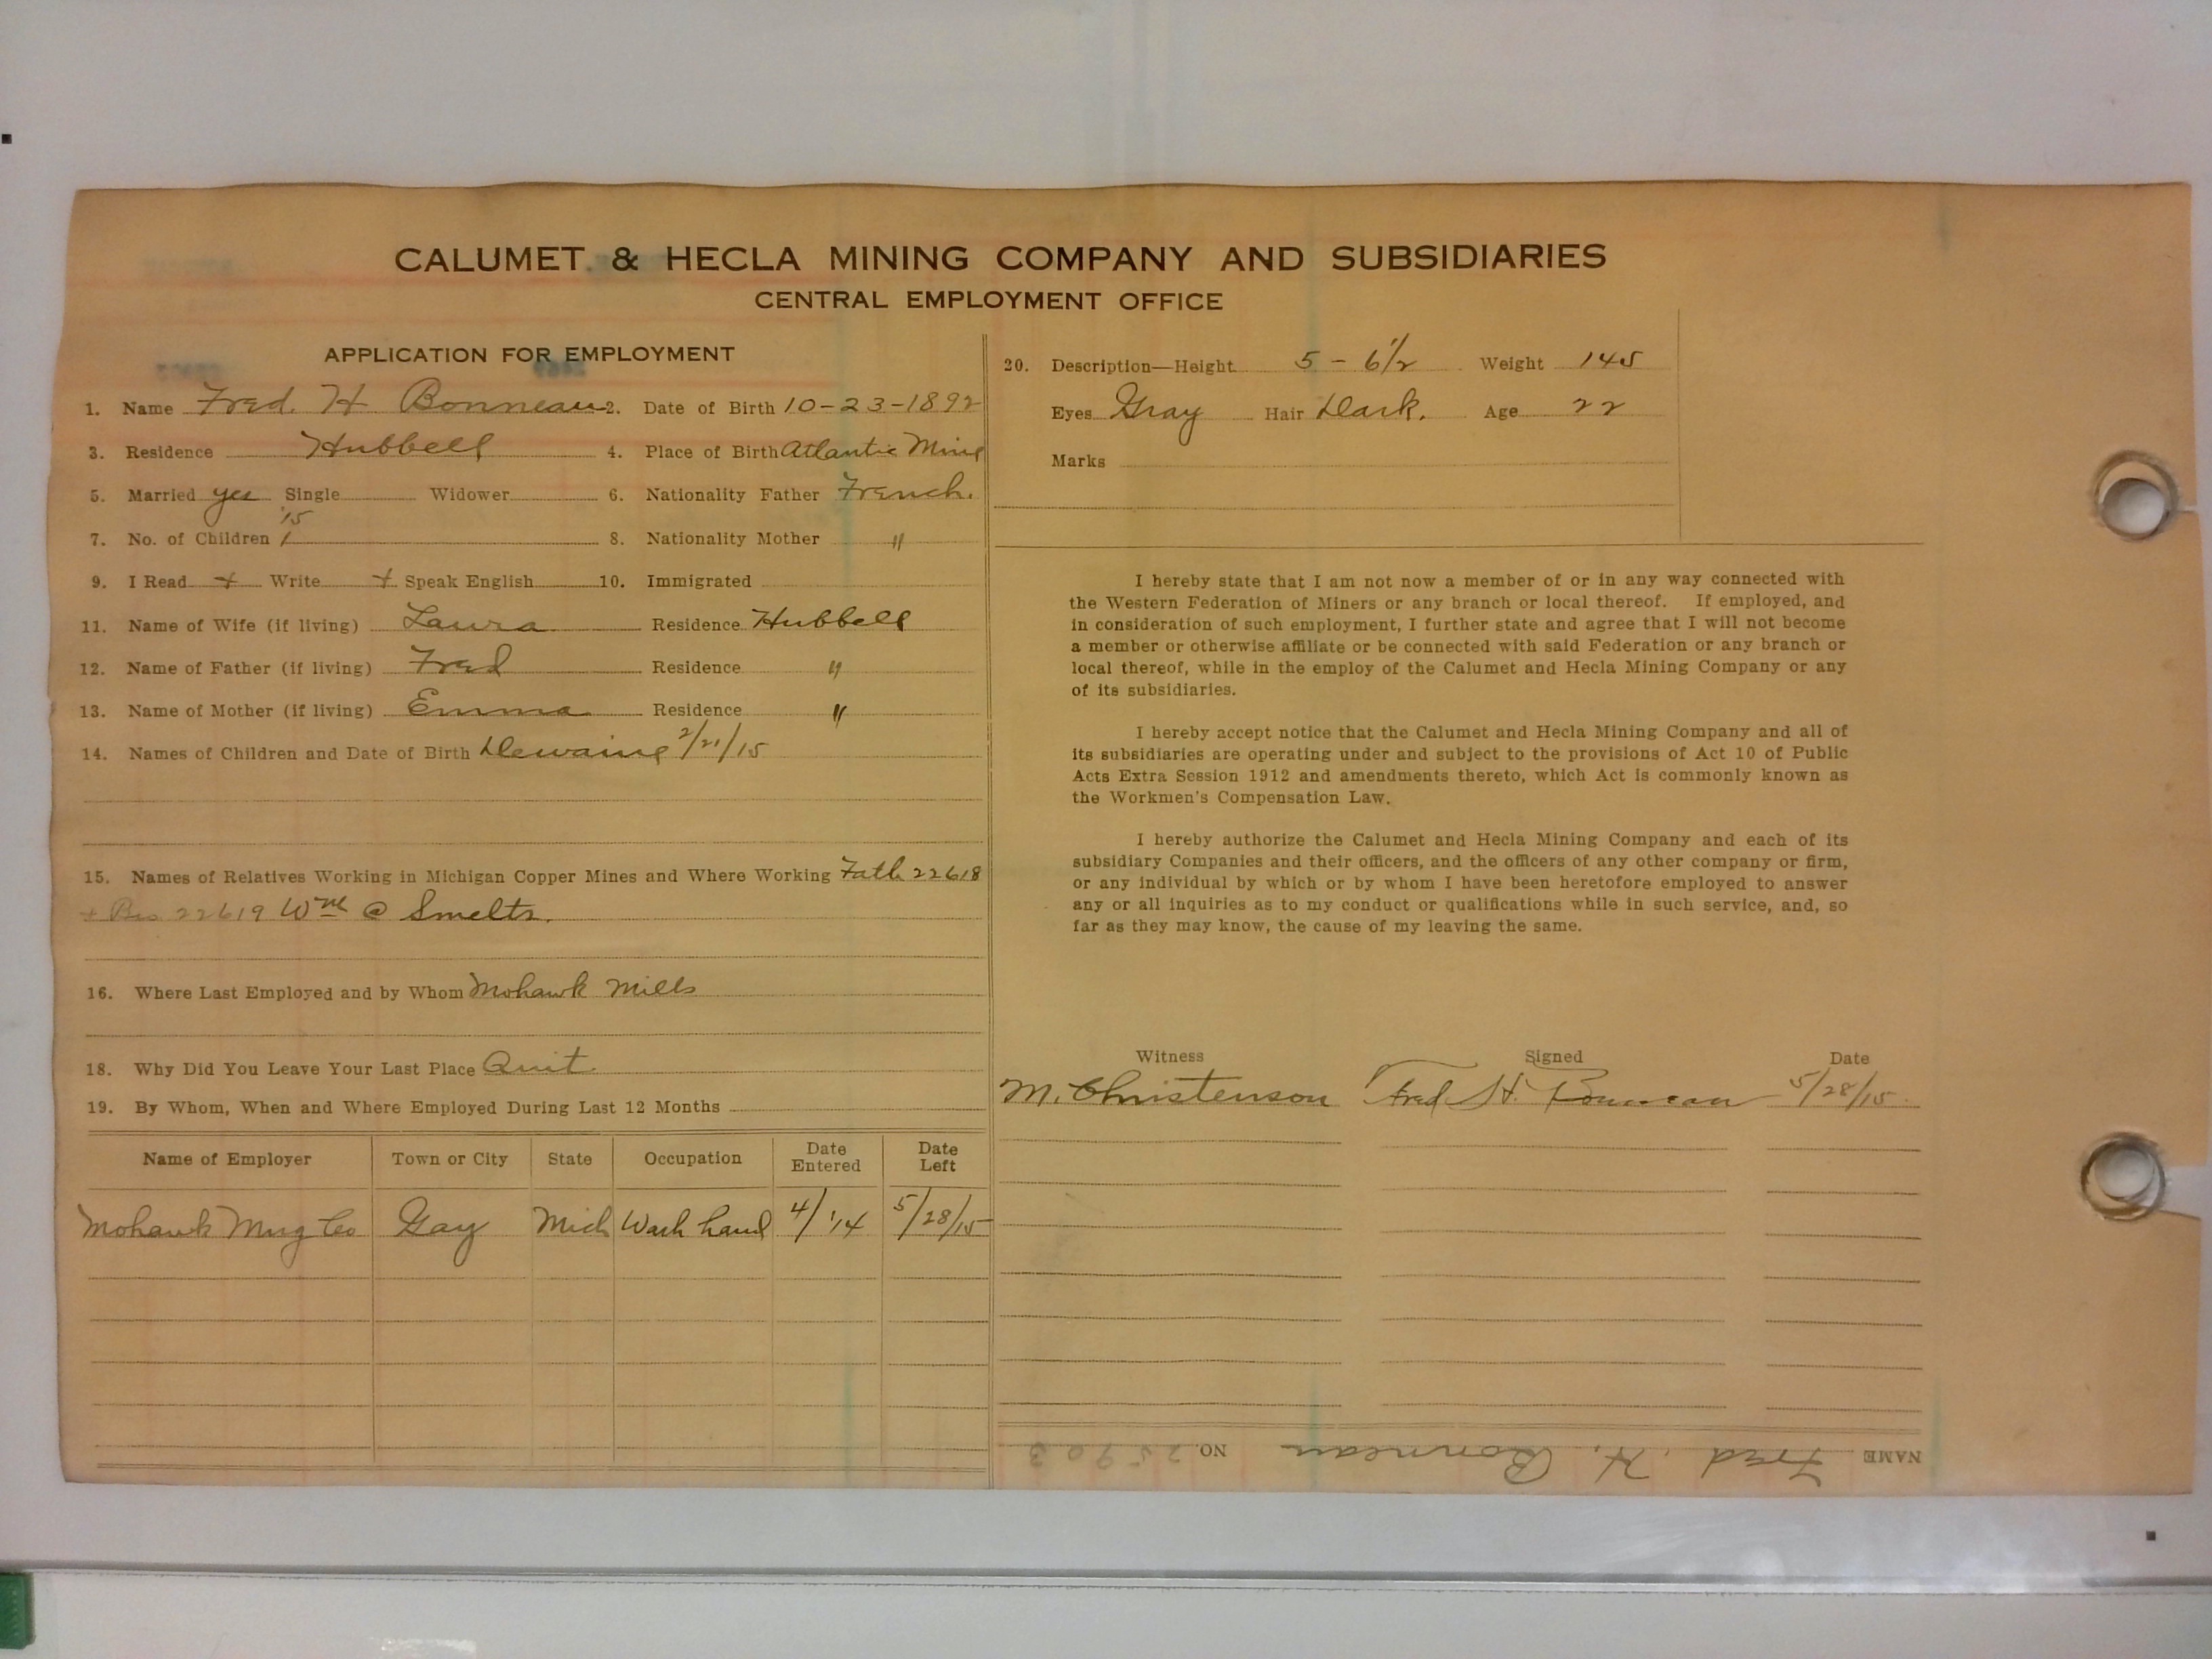 CALUMET & HECLA MINING COMPANY AND SUBSIDIARIES
CENTRAL EMPLOYMENT OFFICE
APPLICATION FOR EMPLOYMENT
1. Name Fred. H Bonneau 2. Date of Birth 10-23-1892
3. Residence Hubbell 4. Place of Birth Atlantic Mine
5. Married yes Single Widower 6. Nationality Father French.
'15
7. No. of Children 1 8. Nationality Mother "
9. I Read + Write + Speak English 10. Immigrated
11. Name of Wife (if living) Laura Residence Hubbell
12. Name of Father (if living) Fred Residence "
13. Name of Mother (if living) Emma Residence "
14. Names of Children and Date of Birth Dewaine 2/21/15
15. Names of Relatives Working in Michigan Copper Mines and Where Working Fath 22618
+ Bro 22619 Wm @ Smelts.
16. Where Last Employed and by Whom Mohawk Mills
18. Why Did You Leave Your Last Place Quit
19. By Whom, When and Where Employed During Last 12 Months
Name of Employer Town or City State Occupation Date Entered Date Left
Mohawk Mng Co Gay Mich Wash hand 4/'14 5/28/15
20. Description—Height 5-6 1/2 Weight 145
Eyes Gray Hair Dark. Age 22
Marks
I hereby state that I am not now a member of or in any way connected with
the Western Federation of Miners or any branch or local thereof. If employed, and
in consideration of such employment, I further state and agree that I will not become
a member or otherwise affiliate or be connected with said Federation or any branch or
local thereof, while in the employ of the Calumet and Hecla Mining Company or any
of its subsidiaries.
I hereby accept notice that the Calumet and Hecla Mining Company and all of
its subsidiaries are operating under and subject to the provisions of Act 10 of Public
Acts Extra Session 1912 and amendments thereto, which Act is commonly known as
the Workmen's Compensation Law.
I hereby authorize the Calumet and Hecla Mining Company and each of its
subsidiary Companies and their officers, and the officers of any other company or firm,
or any individual by which or by whom I have been heretofore employed to answer
any or all inquiries as to my conduct or qualifications while in such service, and, so
far as they may know, the cause of my leaving the same.
Witness Signed Date
M. Christenson Fred H. Bonneau 5/28/15
NAME Fred. H. Bonneau NO. 25903